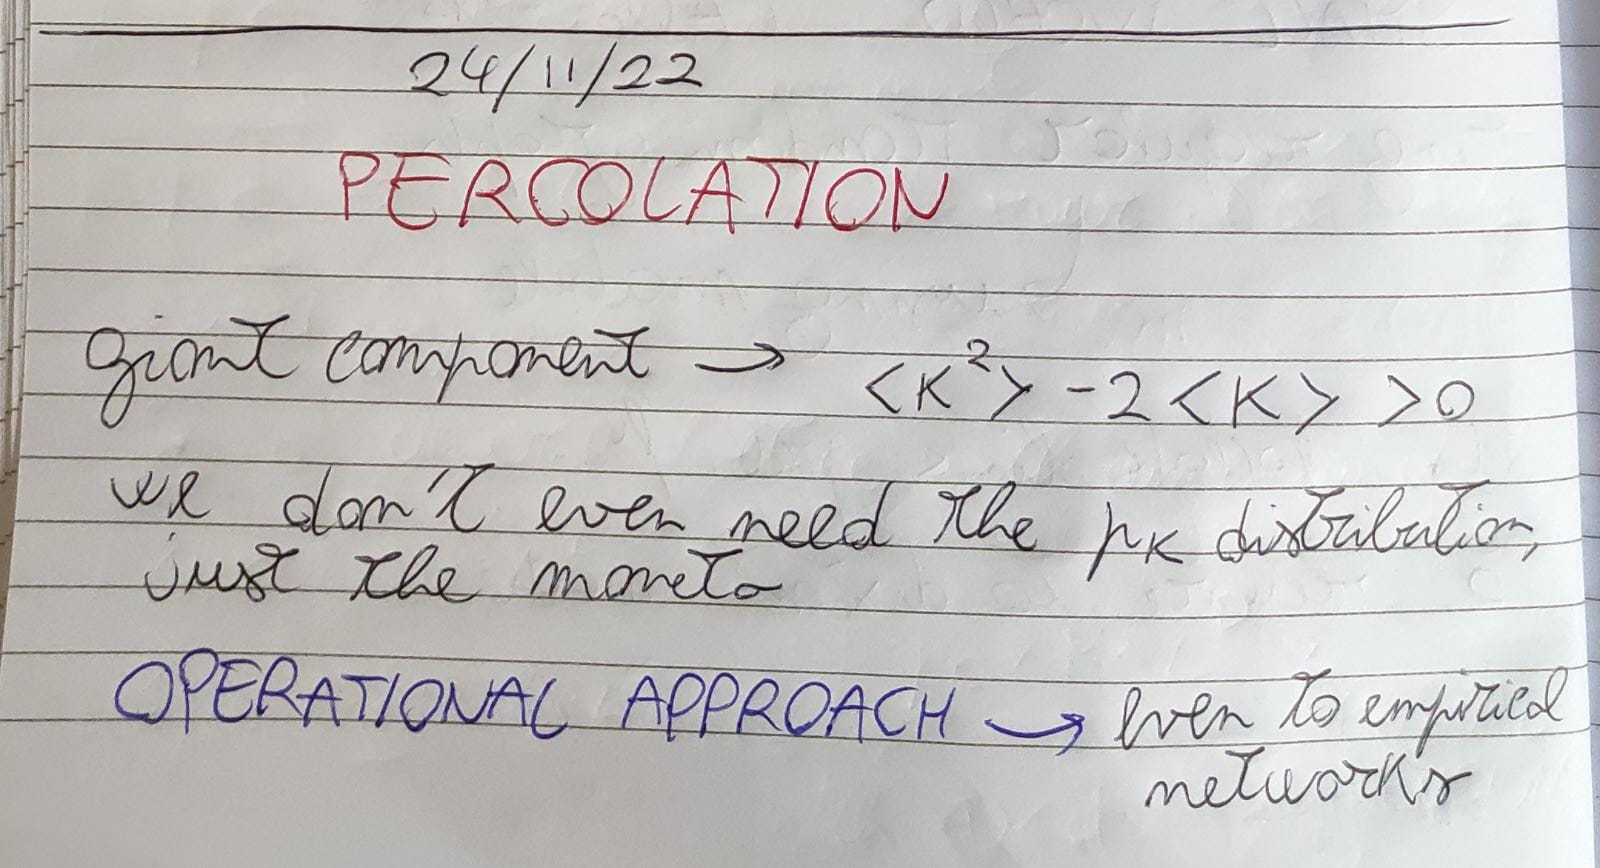 24/11/22
PERCOLATION
giant component → <K²> - 2<K> > 0
we don't even need the pK distribution,
just the momets
OPERATIONAL APPROACH → even to empirical
networks